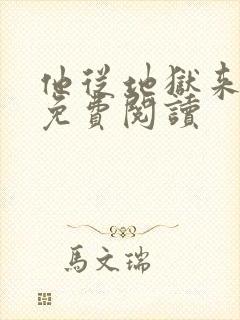 他從地獄來
免費閱讀
馬文瑞